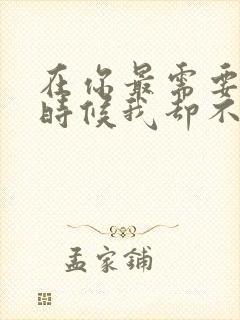 在你最需要
時候我却不
孟家鋪